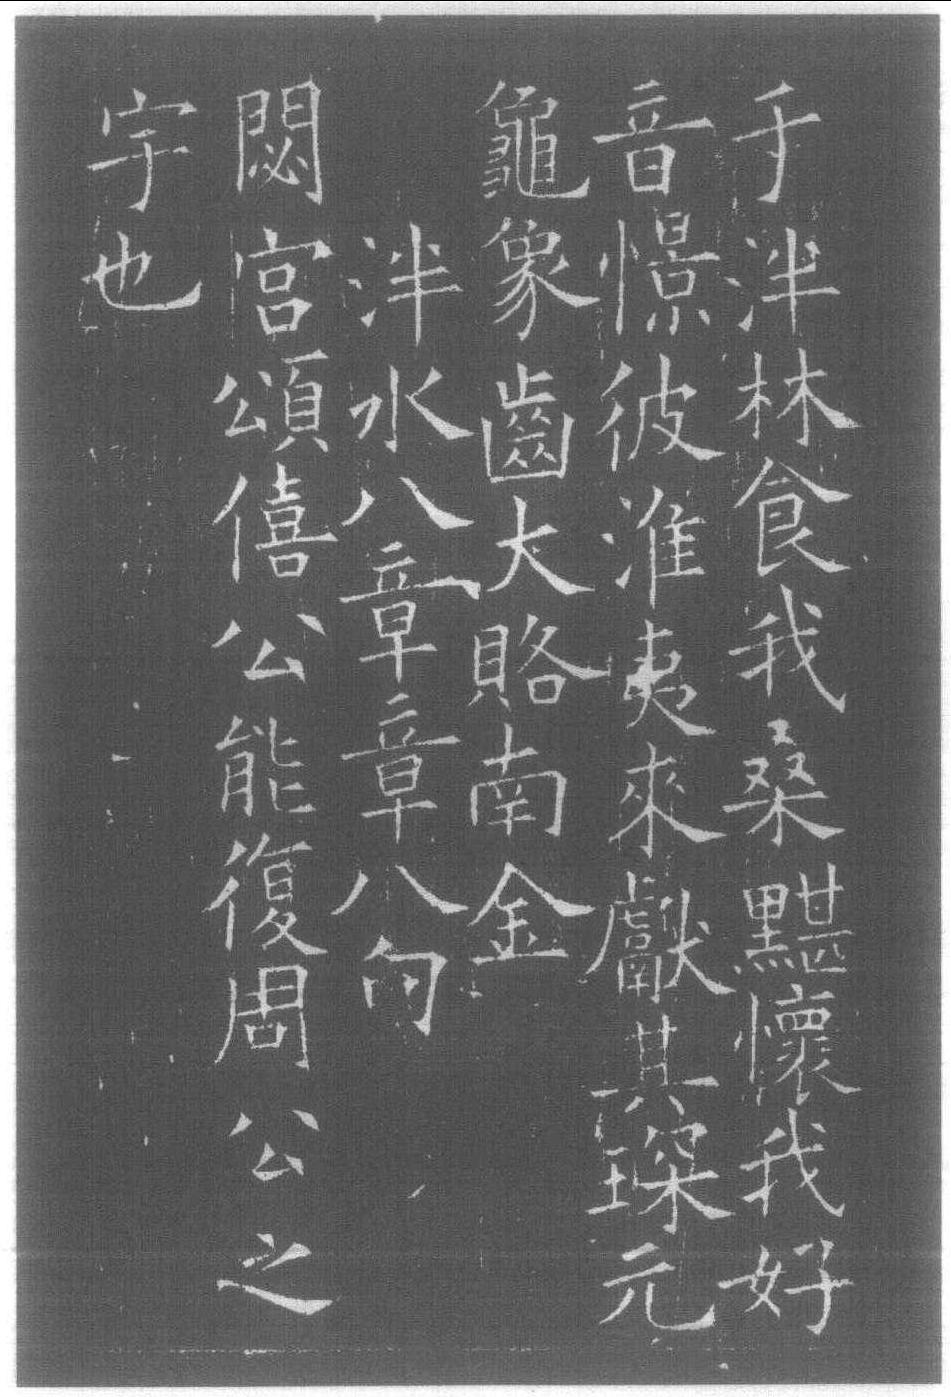 于泮林食我桑黮懷我好
音憬彼淮夷來獻其琛元
龜象齒大賂南金
泮水八章章八句
閟宮頌僖公能復周公之
宇也